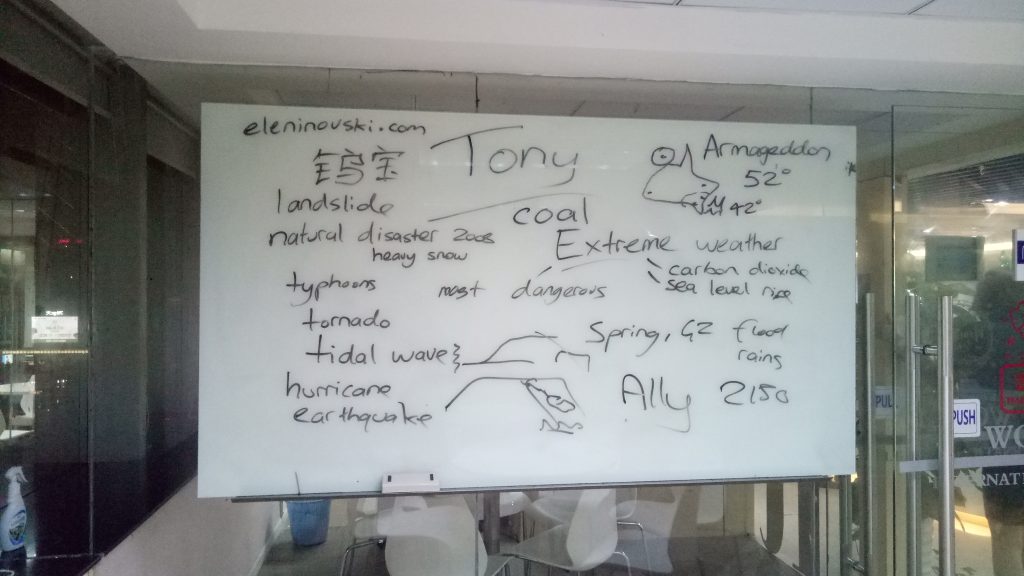 eleninovski.com
宝 Tony
Armageddon
52°
42°
landslide
coal
natural disaster 2008
heavy snow
Extreme weather
carbon dioxide
sea level rise
typhoons
most dangerous
tornado
tidal wave
Spring, GZ flood
rains
hurricane
earthquake
Ally 2150
PUSH